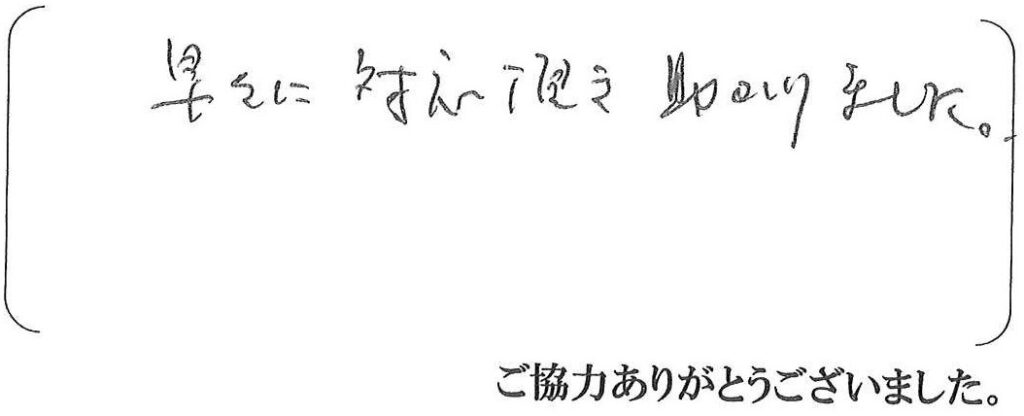 早々に対応頂き助かりました。
ご協力ありがとうございました。